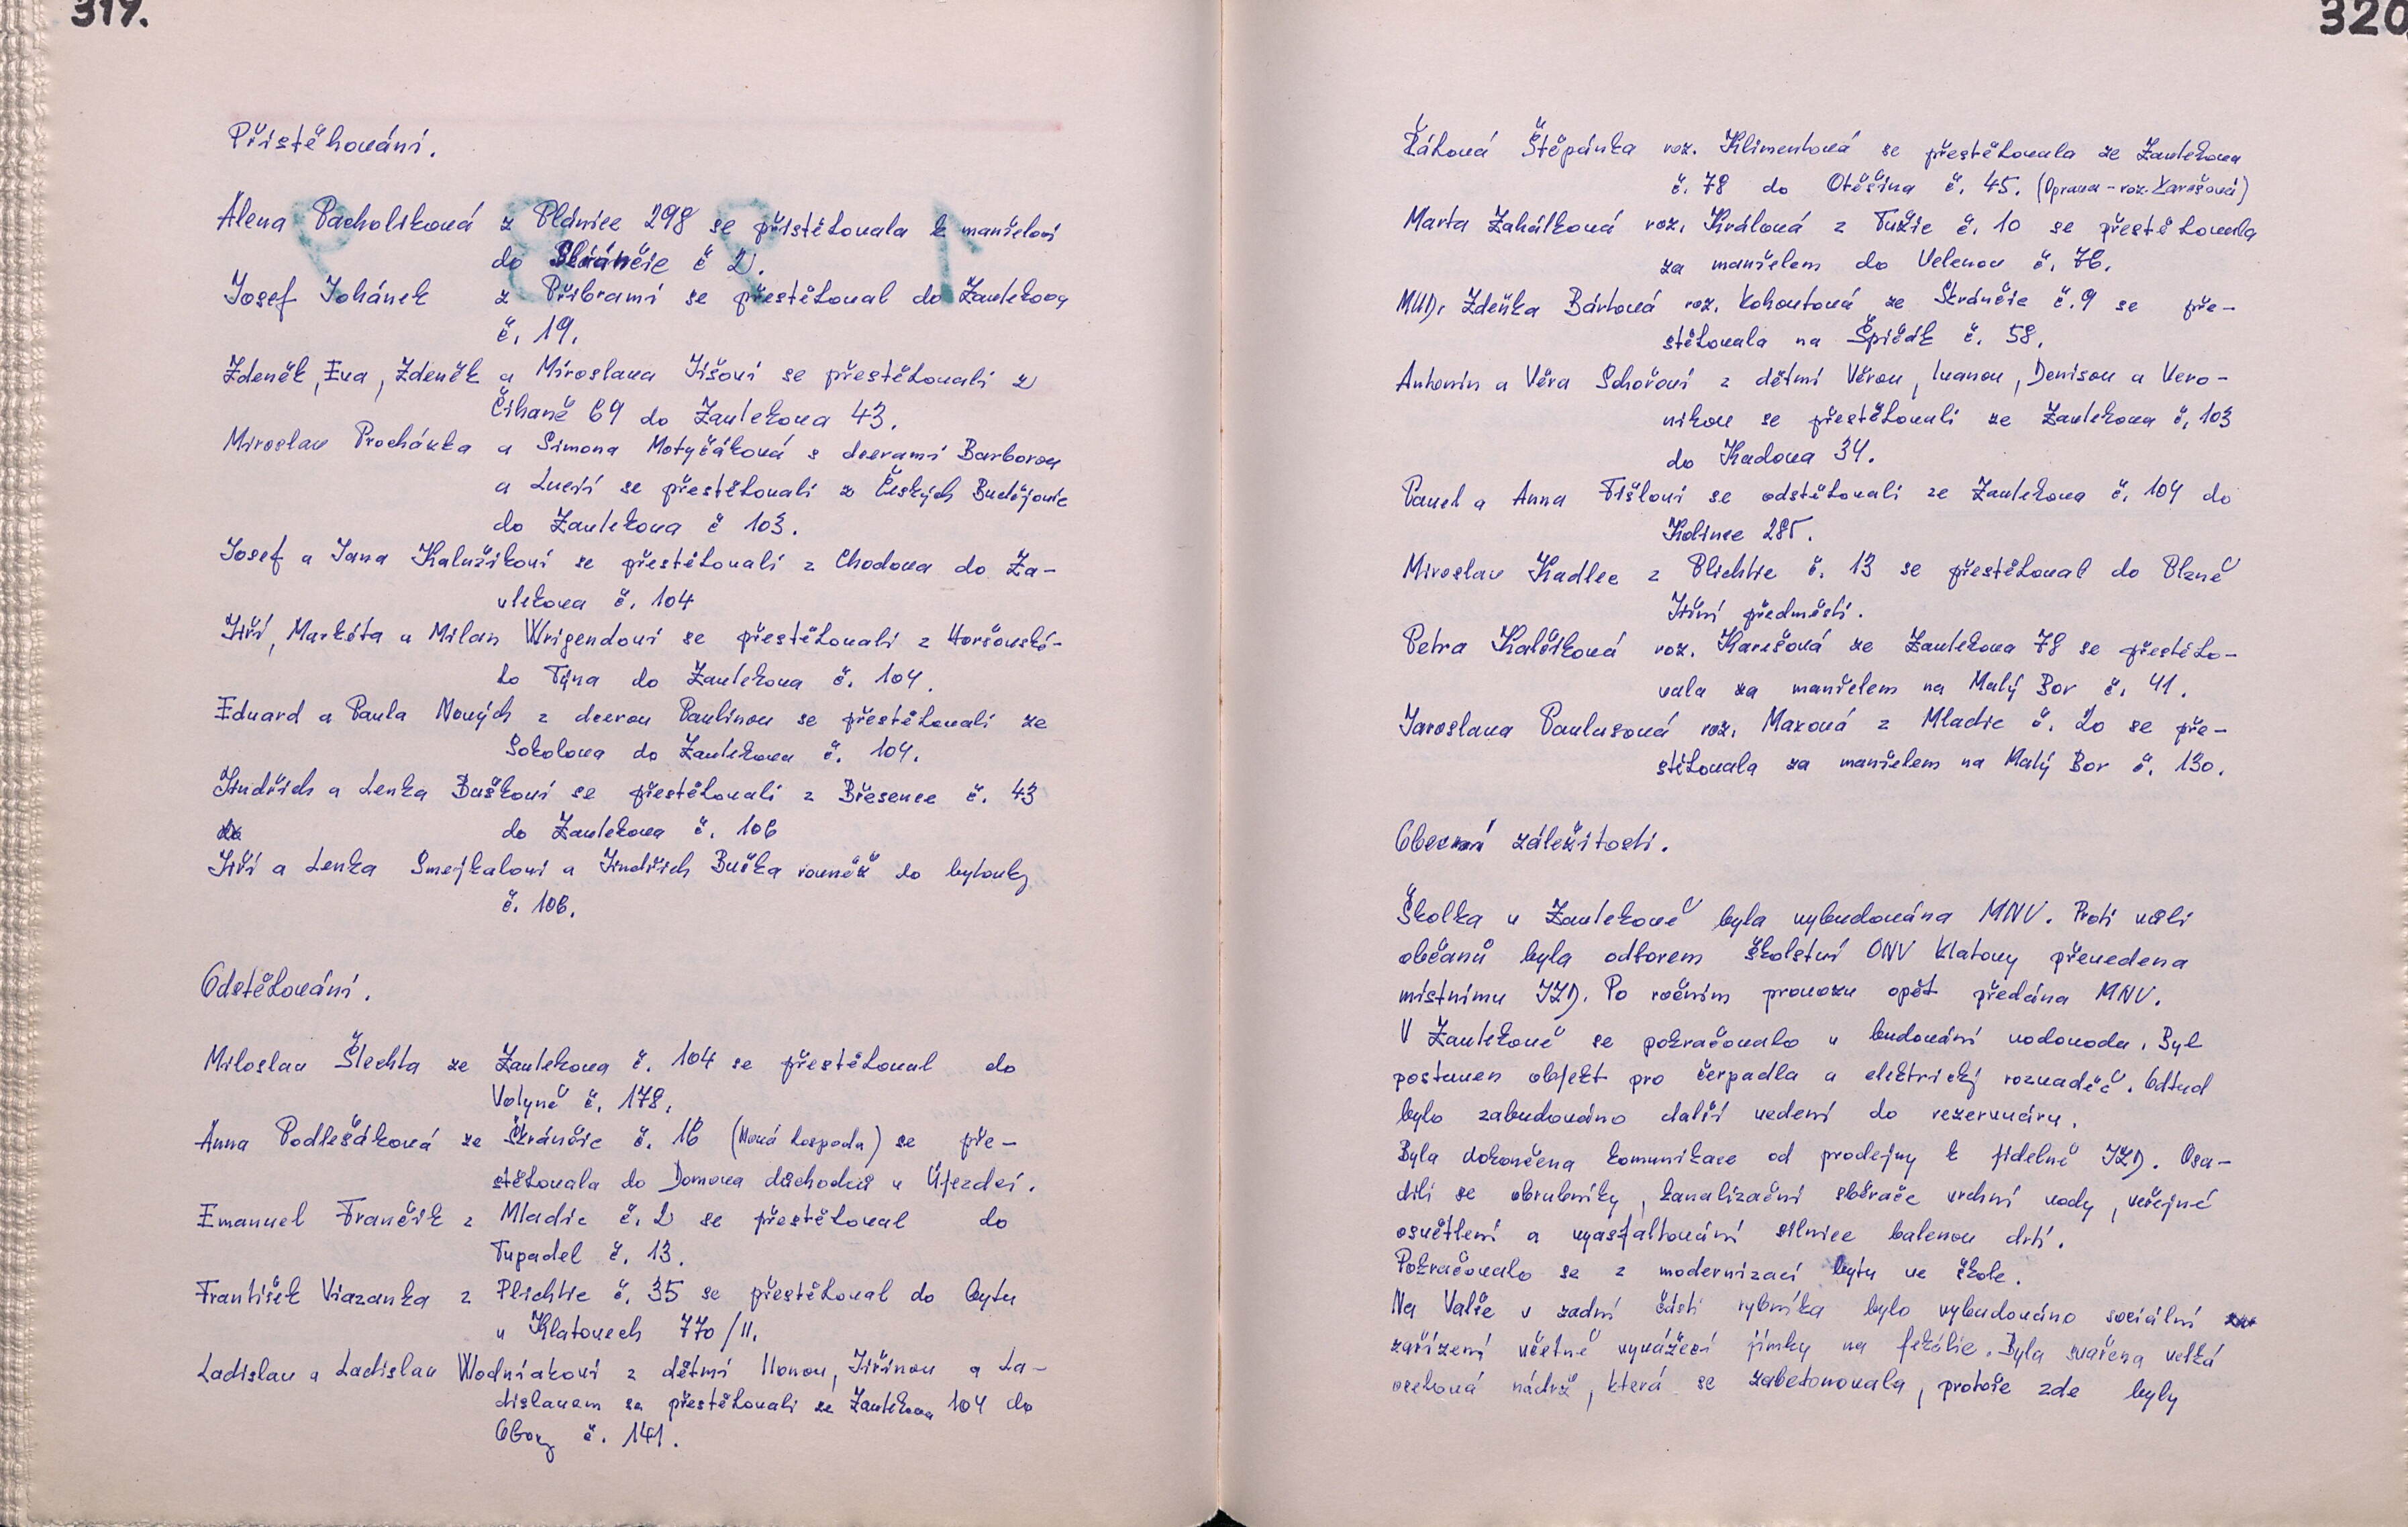 319.
Přistěhování.
Alena Pacholíková z Plánice 298 se přistěhovala k manželovi
do č 2.
Josef Johánek z Příbrami se přestěhoval do Zavlekova
č. 19.
Zdeněk, Eva, Zdeněk a Miroslava Jišovi se přestěhovali z
Číhaně 69 do Zavlekova 43.
Miroslav Procházka a Simona Motyčáková s dcerami Barborou
a Lucií se přestěhovali z Českých Budějovic
do Zavlekova č 103.
Josef a Jana Kalužíkovi se přestěhovali z Chodova do Za-
vlekova č. 104
Jiří, Markéta a Milan Wrigendovi se přestěhovali z Horšovské-
ho Týna do Zavlekova č. 104.
Eduard a Pavla Nových z dcerou Pavlínou se přestěhovali ze
Sokolova do Zavlekova č. 104.
Jindřich a Lenka Buškovi se přestěhovali z Břesence č. 43
do Zavlekova č. 106
Jiří a Lenka Smejkalovi a Jindřich Buška rovněž do bytovky
č. 106.
Odstěhování.
Miloslav Šlechta ze Zavlekova č. 104 se přestěhoval do
Volyně č. 178.
Anna Podlešáková ze Skránčic č. 16 (Nová hospoda) se pře-
stěhovala do Domova důchodců v Újezdci.
Emanuel Frančík z Mladic č. 2 se přestěhoval do
Tupadel č. 13.
František Viazanka z Plichtic č. 35 se přestěhoval do bytu
v Klatovech 770/II.
Ladislav a Ladislav Wodniakovi z dětmi Ilonou, Jiřinou a La-
dislavem se přestěhovali ze Zavlekova 104 do
Obory č. 141.
320
Žáková Štěpánka roz. Klimentová se přestěhovala ze Zavlekova
č. 78 do Otěšína č. 45. (Oprava - roz. Karešová)
Marta Zahálková roz. Králová z Tužic č. 10 se přestěhovala
za manželem do Velenov č. 76.
MUDr Zdeňka Bártová roz. Kohoutová ze Skránčic č. 9 se pře-
stěhovala na Špičák č. 58.
Antonín a Věra Schořovi z dětmi Věrou, Ivanou, Denisou a Vero-
nikou se přestěhovali ze Zavlekova č. 103
do Kadova 34.
Pavel a Anna Fišlovi se odstěhovali ze Zavlekova č. 104 do
Kolince 285.
Miroslav Kadlec z Plichtic č. 13 se přestěhoval do Plzně
Jižní předměstí.
Petra Kalčíková roz. Karešová ze Zavlekova 78 se přestěho-
vala za manželem na Malý Bor č. 41.
Jaroslava Paulusová roz. Maxová z Mladic č. 20 se pře-
stěhovala za manželem na Malý Bor č. 130.
Obecní záležitosti.
Školka v Zavlekově byla vybudována MNV. Proti vůli
občanů byla odborem školství ONV Klatovy převedena
místnímu JZD. Po ročním provozu opět předána MNV.
V Zavlekově se pokračovalo v budování vodovodu. Byl
postaven objekt pro čerpadla a elektrický rozvaděč. Odtud
bylo zabudováno další vedení do rezervuáru.
Byla dokončena komunikace od prodejny k jídelně JZD. Osa-
dili se obrubníky, kanalizační sběrače vrchní vody, veřejné
osvětlení a vyasfaltování silnice balenou drtí.
Pokračovalo se z modernizací bytu ve škole.
Na Valše v zadní části rybníka bylo vybudováno sociální
zařízení včetně vyvážecí jímky na fekálie. Byla svařena velká
ocelová nádrž, která se zabetonovala, protože zde byly